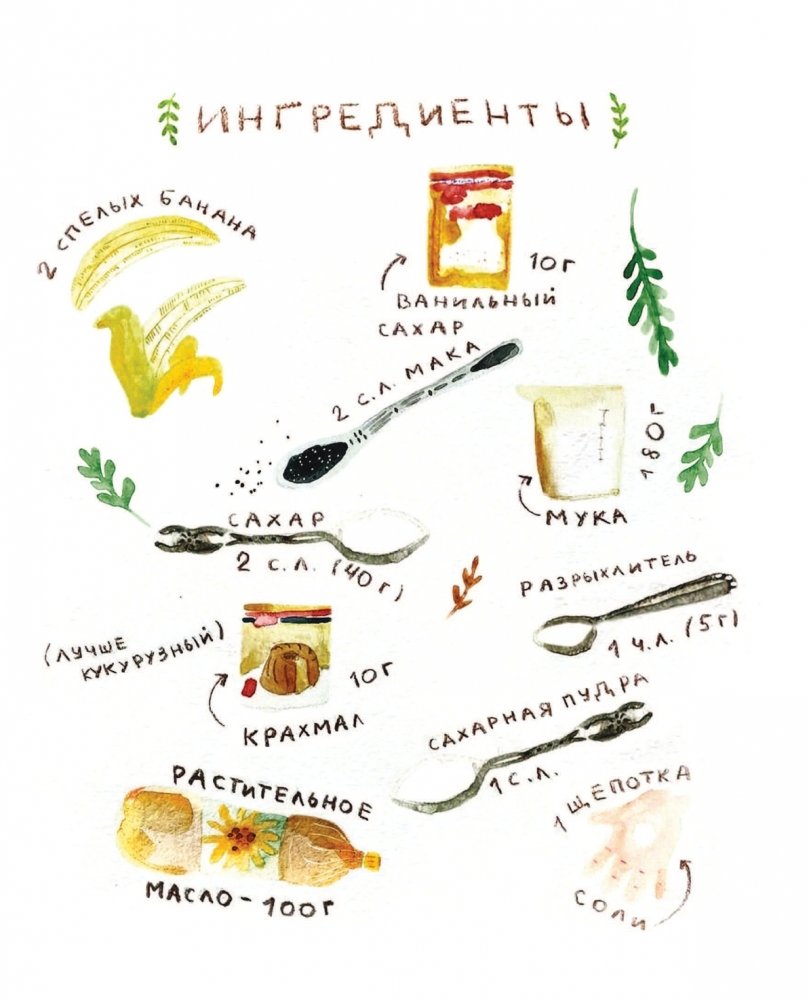 ИНГРЕДИЕНТЫ
2 СПЕЛЫХ БАНАНА
10г
ВАНИЛЬНЫЙ
САХАР
2 с.л. МАКА
180г
МУКА
САХАР
2 с.л. (40г)
РАЗРЫХЛИТЕЛЬ
1 ч.л. (5г)
(ЛУЧШЕ
КУКУРУЗНЫЙ)
10г
КРАХМАЛ
САХАРНАЯ ПУДРА
1 с.л.
РАСТИТЕЛЬНОЕ
МАСЛО - 100г
1 ЩЁПОТКА
СОЛИ